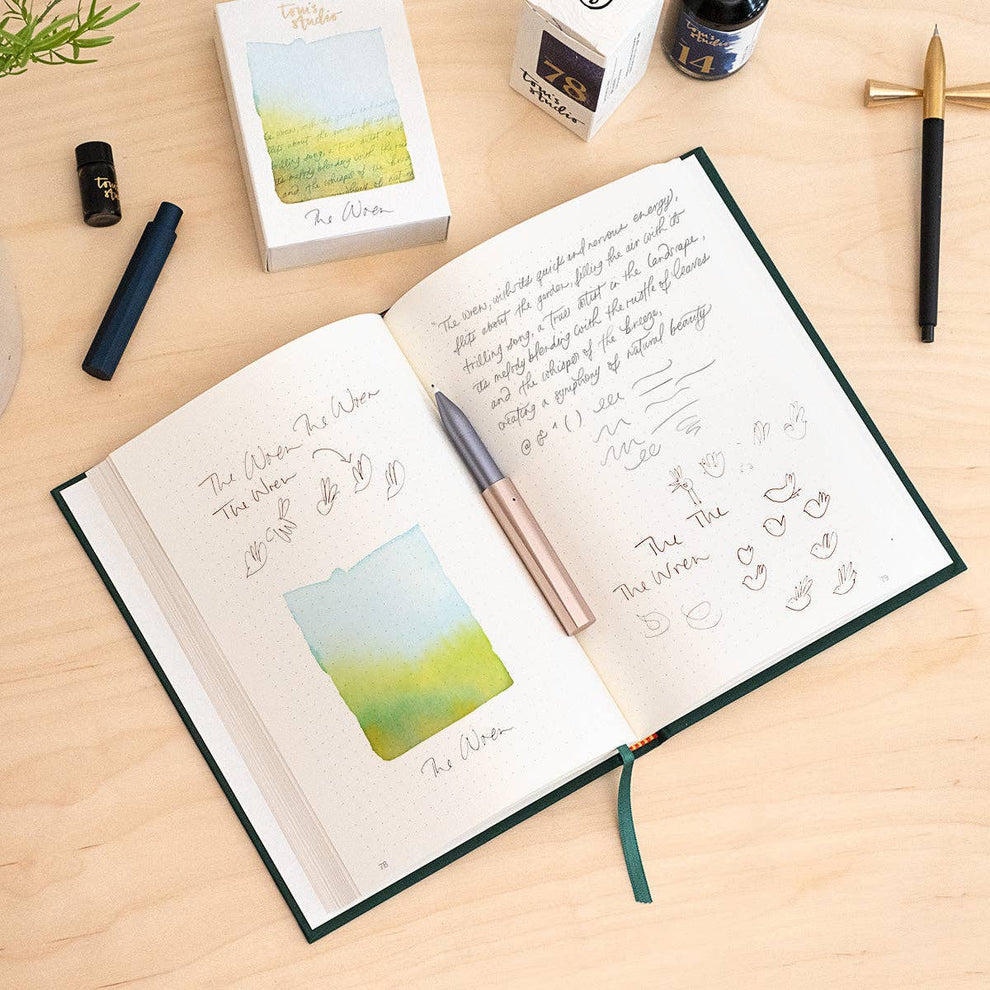 tom's
studio
The Wren
78
tom's
studio
14
tom's
studio
"The wren, with its quick and nervous energy,
flits about the garden, filling the air with its
trilling song, a true artist in the landscape,
its melody blending with the rustle of leaves
and the whisper of the breeze,
creating a symphony of natural beauty
@ & ^ ( )
The Wren The Wren
The Wren
The Wren
78
The
The
The Wren
79